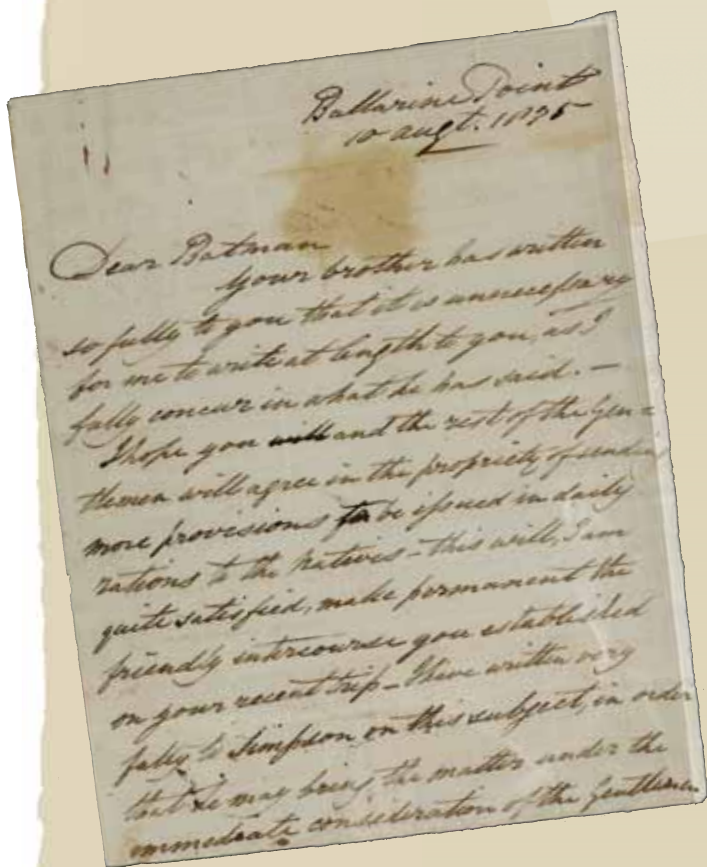 Ballarine Point
10 augt. 1835
Dear Batman
Your brother has written
so fully to you that it is unnecessary
for me to write at length to you, as I
fully concur in what he has said. —
I hope you will and the rest of the Gen=
tlemen will agree in the propriety of sending
more provisions to be issued in daily
rations to the natives - this will, I am
quite satisfied, make permanent the
friendly intercourse you established
on your recent trip - I have written very
fully to Simpson on this subject, in order
that he may bring the matter under the
immediate consideration of the Gentlemen